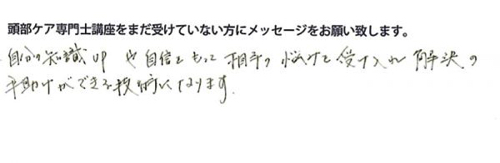 頭部ケア専門士講座をまだ受けていない方にメッセージをお願い致します。
自分の知識UPや自信をもって相手の悩みを受け入れ解決の
手助けができる技術になります。